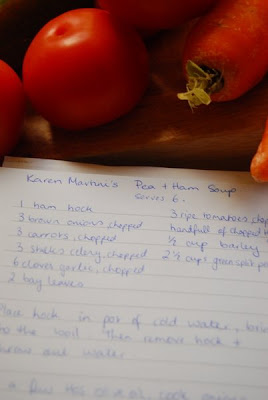 Karen Martini's Pea + Ham Soup
serves 6.
1 ham hock
3 brown onions, chopped
3 carrots, chopped
3 stalks celery, chopped
6 cloves garlic, chopped
2 bay leaves
3 ripe tomatoes, chop
handfull of chopped
½ cup barley
2½ cups green split pe
Place hock in pot of cold water, brin
to the boil then remove hock +
throw out water
a few tbs of oil, cook onions